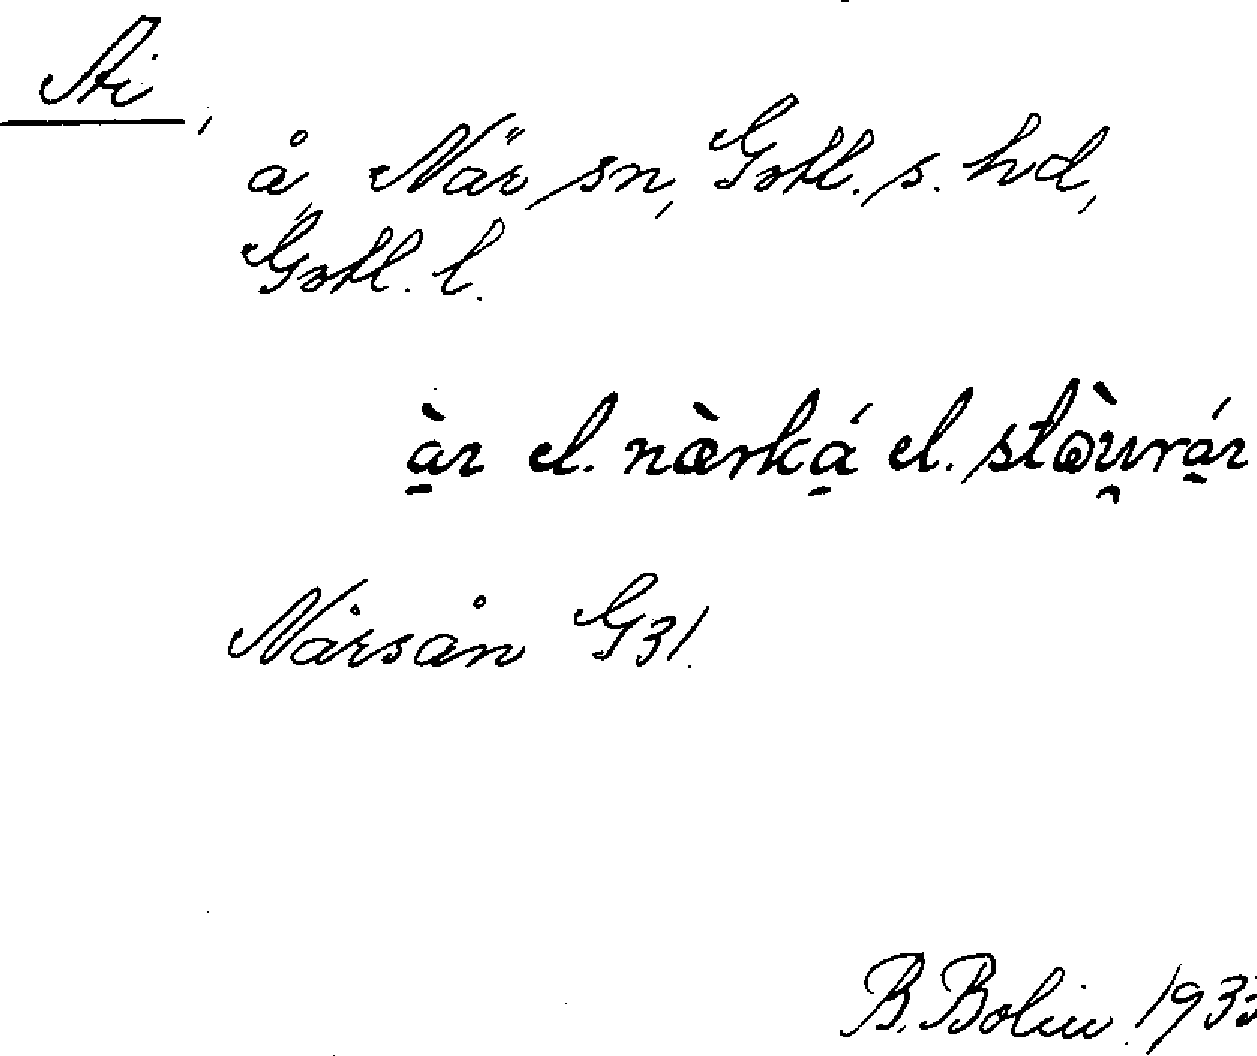 Ai,
å, När sn, Gotl. s. hd,
Gotl. l.
à̠r el. næ̀rká̠ el. stɷ̀u̯rá̠r
Nårsån G31.
B. Bolin 1933